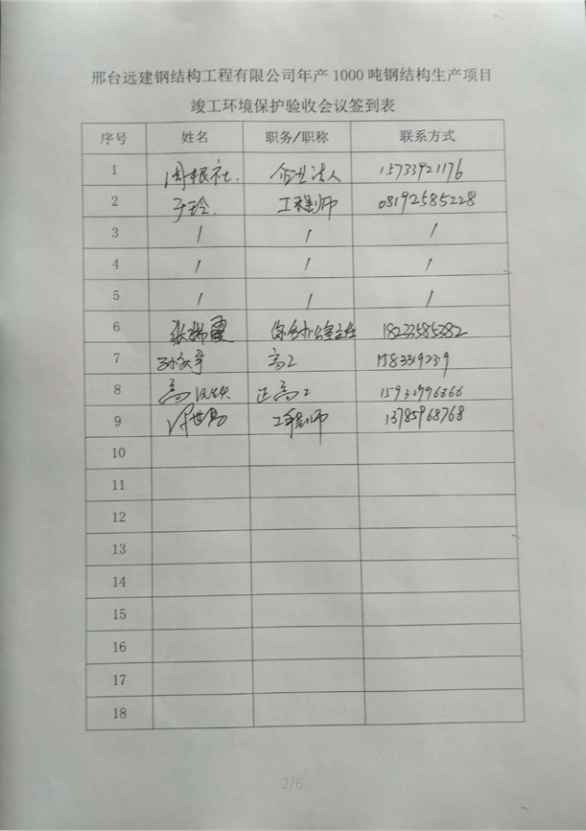 邢台远建钢结构工程有限公司年产1000吨钢结构生产项目
竣工环境保护验收会议签到表
序号 姓名 职务/职称 联系方式
1 周根社 企业法人 15733921176
2 于玲 工程师 08192585228
3 / / /
4 / / /
5 / / /
6 张瑞霞 综合办公室主任 18233585282
7 高工
8 高 正高工
9 工程师 13785968768
10
11
12
13
14
15
16
17
18
2/6